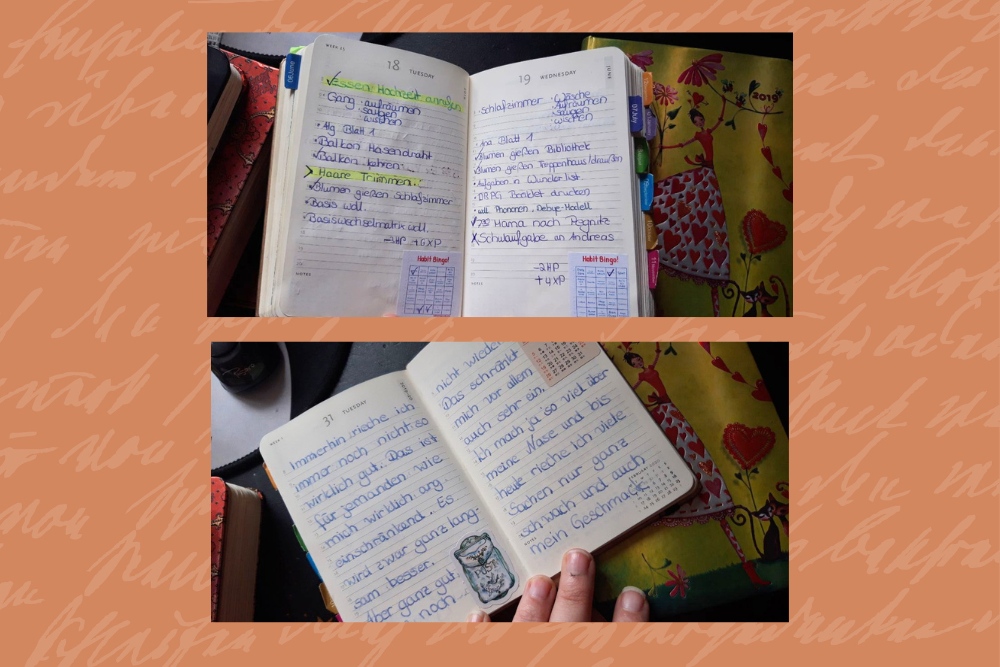 WEEK 25
18 TUESDAY
✓Essen Hochzeit anrufen
Gang · aufräumen
saugen
wischen
• Alg Blatt 1
• Balkon Hasendraht
✓Balkon kehren
> Haare Trimmen.
✓Blumen gießen Schlafzimmer
• Basis voll
• Basiswechselmatrix voll.
-3HP +6XP
NOTES
Habit Bingo!
19 WEDNESDAY
JUNE
• schlafzimmer · Wäsche
Aufräumen
saugen
wischen
• Ana Blatt 1
✓Blumen gießen Bibliothek
✓Blumen gießen Treppenhaus/draußen
• Aufgaben in Wunderlist.
• DRPG Booklet drucken
• voll Phononen, Debye-Modell
✓7³⁰ Mama nach Pegnitz
X Schulaufgabe an Andreas
-2HP
+4XP
NOTES
Habit Bingo!
07 July
2019
WEEK 1
31 TUESDAY
Immerhin rieche ich
immer noch nicht so
wirklich gut. Das ist
für jemanden wie
mich wirklich arg
einschränkend. Es
wird zwar ganz lang-
sam besser.
Aber ganz gut
noch
POST
nicht wieder
Das schränkt
mich vor allem
auch sehr ein.
Ich mach ja so viel über
meine Nase und bis
heute rieche ich viele
Sachen nur ganz
schwach und auch
mein Geschmack
NOTES
FEBRUARY